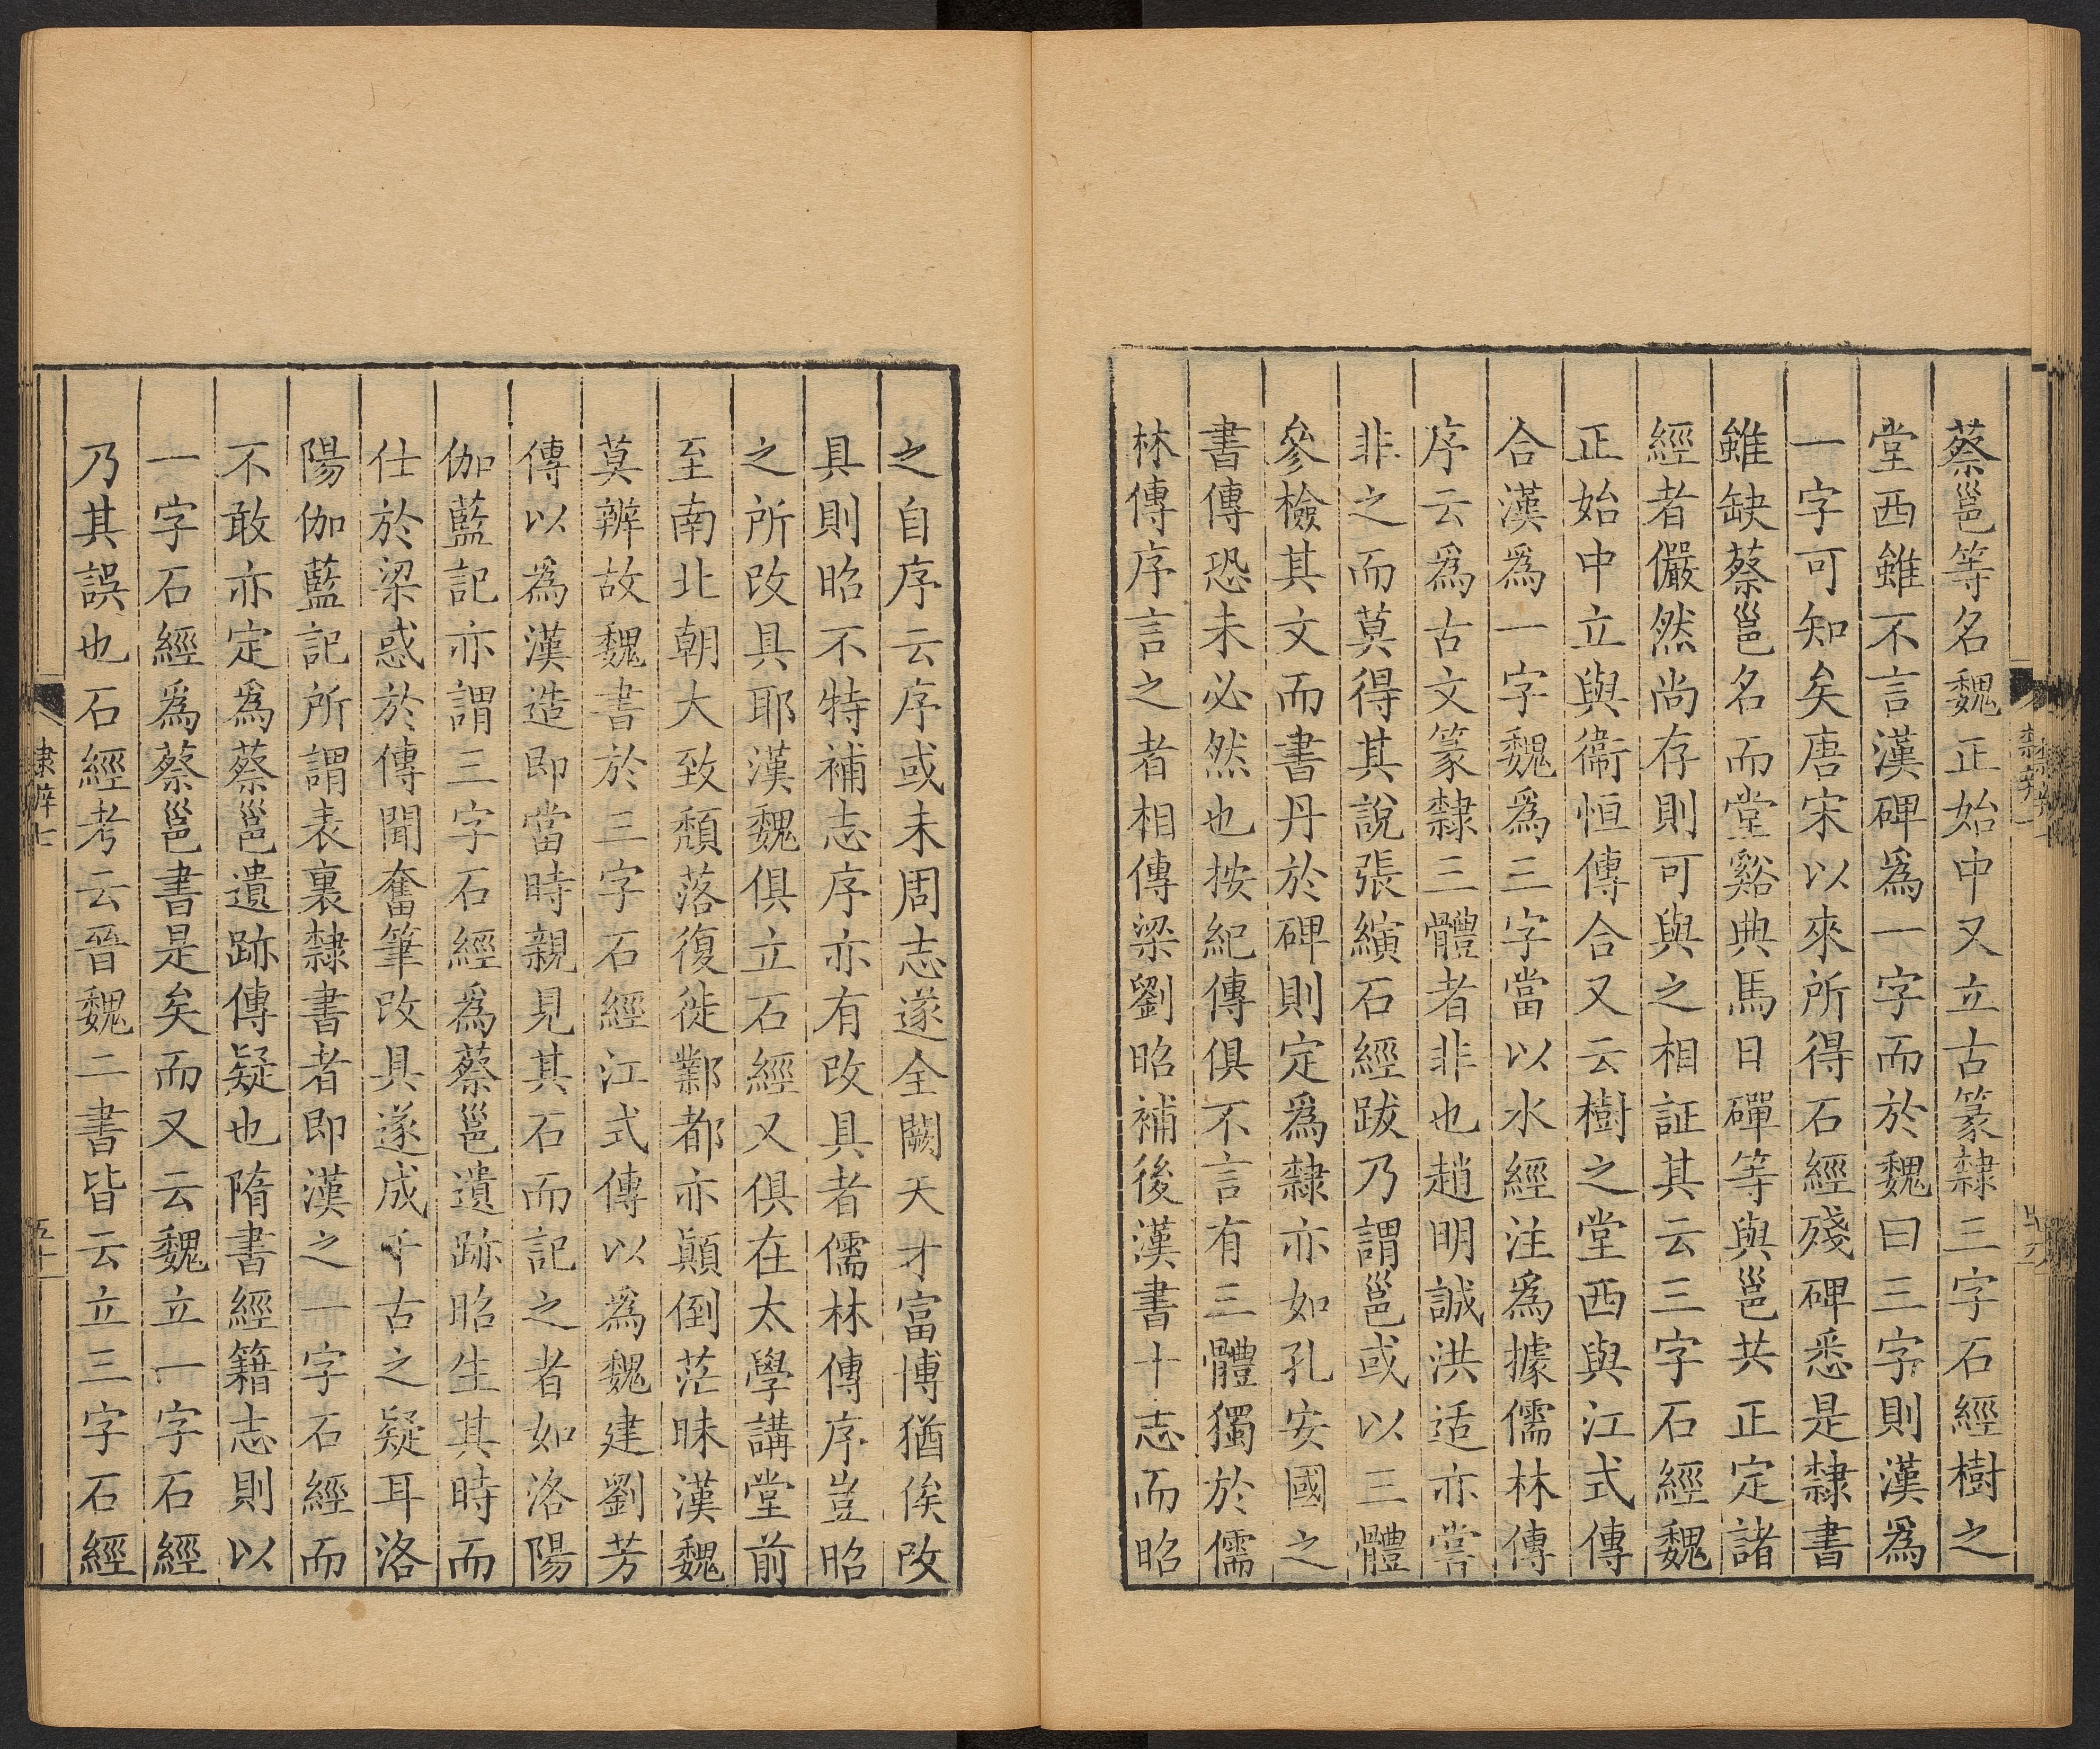 蔡邕等名魏正始中又立古篆隸三字石經樹之
堂西雖不言漢碑爲一字而於魏曰三字則漢爲
一字可知矣唐宋以來所得石經殘碑悉是隸書
雖缺蔡邕名而堂谿典馬日磾等與邕共正定諸
經者儼然尚存則可與之相証其云三字石經魏
正始中立與衞恒傳合又云樹之堂西與江式傳
合漢爲一字魏爲三字當以水經注爲據儒林傳
序云爲古文篆隸三體者非也趙明誠洪适亦嘗
非之而莫得其說張縯石經跋乃謂邕或以三體
參檢其文而書丹於碑則定爲隸亦如孔安國之
書傳恐未必然也按紀傳俱不言有三體獨於儒
林傳序言之者相傳梁劉昭補後漢書十志而昭
之自序云序或未周志遂全闕天才富博猶俟改
具則昭不特補志序亦有改具者儒林傳序豈昭
之所改具耶漢魏俱立石經又俱在太學講堂前
至南北朝大致頹落復徙鄴都亦顛倒茫昧漢魏
莫辨故魏書於三字石經江式傳以爲魏建劉芳
傳以爲漢造即當時親見其石而記之者如洛陽
伽藍記亦謂三字石經爲蔡邕遺跡昭生其時而
仕於梁惑於傳聞奮筆改具遂成千古之疑耳洛
陽伽藍記所謂表裏隸書者即漢之一字石經而
不敢亦定爲蔡邕遺跡傳疑也隋書經籍志則以
一字石經爲蔡邕書是矣而又云魏立一字石經
乃其誤也石經考云晉魏二書皆云立三字石經
隸辨七
五十一